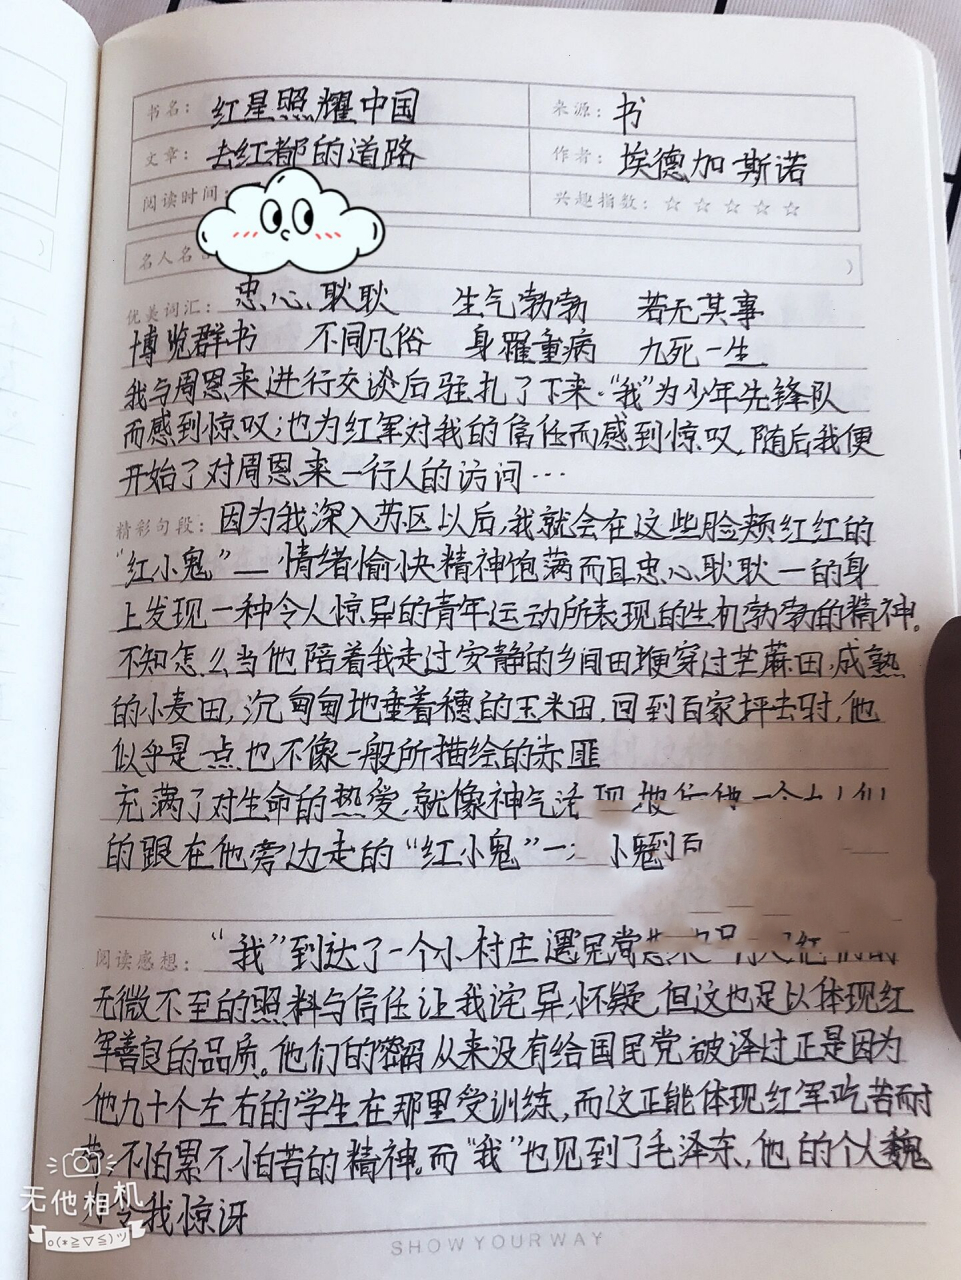 书名：红星照耀中国 来源：书
文章：去红都的道路 作者：埃德加斯诺
阅读时间： 兴趣指数：☆☆☆☆☆
名人名 ）
优美词汇：忠心耿耿 生气勃勃 若无其事
博览群书 不同凡俗 身罹重病 九死一生
我与周恩来进行交谈后驻扎了下来.“我”为少年先锋队
而感到惊叹;也为红军对我的信任而感到惊叹,随后我便
开始了对周恩来一行人的访问…
精彩句段：因为我深入苏区以后,我就会在这些脸颊红红的
“红小鬼”——情绪愉快精神饱满而且忠心耿耿一的身
上发现一种令人惊异的青年运动所表现的生机勃勃的精神。
不知怎么当他陪着我走过安静的乡间田埂穿过芝麻田,成熟
的小麦田,沉甸甸地垂着穗的玉米田,回到百家坪去时,他
似乎是一点也不像一般所描绘的赤匪
充满了对生命的热爱,就像神气活现
的跟在他旁边走的“红小鬼”一 小 到百
阅读感想：“我”到达了一个小村庄遇见党 红
无微不至的照料与信任让我诧异,怀疑,但这也足以体现红
军善良的品质。他们的密码从来没有给国民党破译过正是因为
他九十个左右的学生在那里受训练,而这正能体现红军吃苦而耐
劳,不怕累不怕苦的精神。而“我”也见到了毛泽东,他的个人魏
令我惊讶
无他相机
o(*≧▽≦)ツ
SHOW YOUR WAY